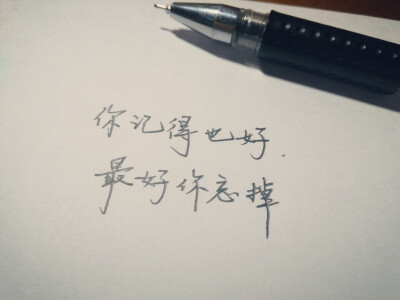 你记得也好.
最好你忘掉